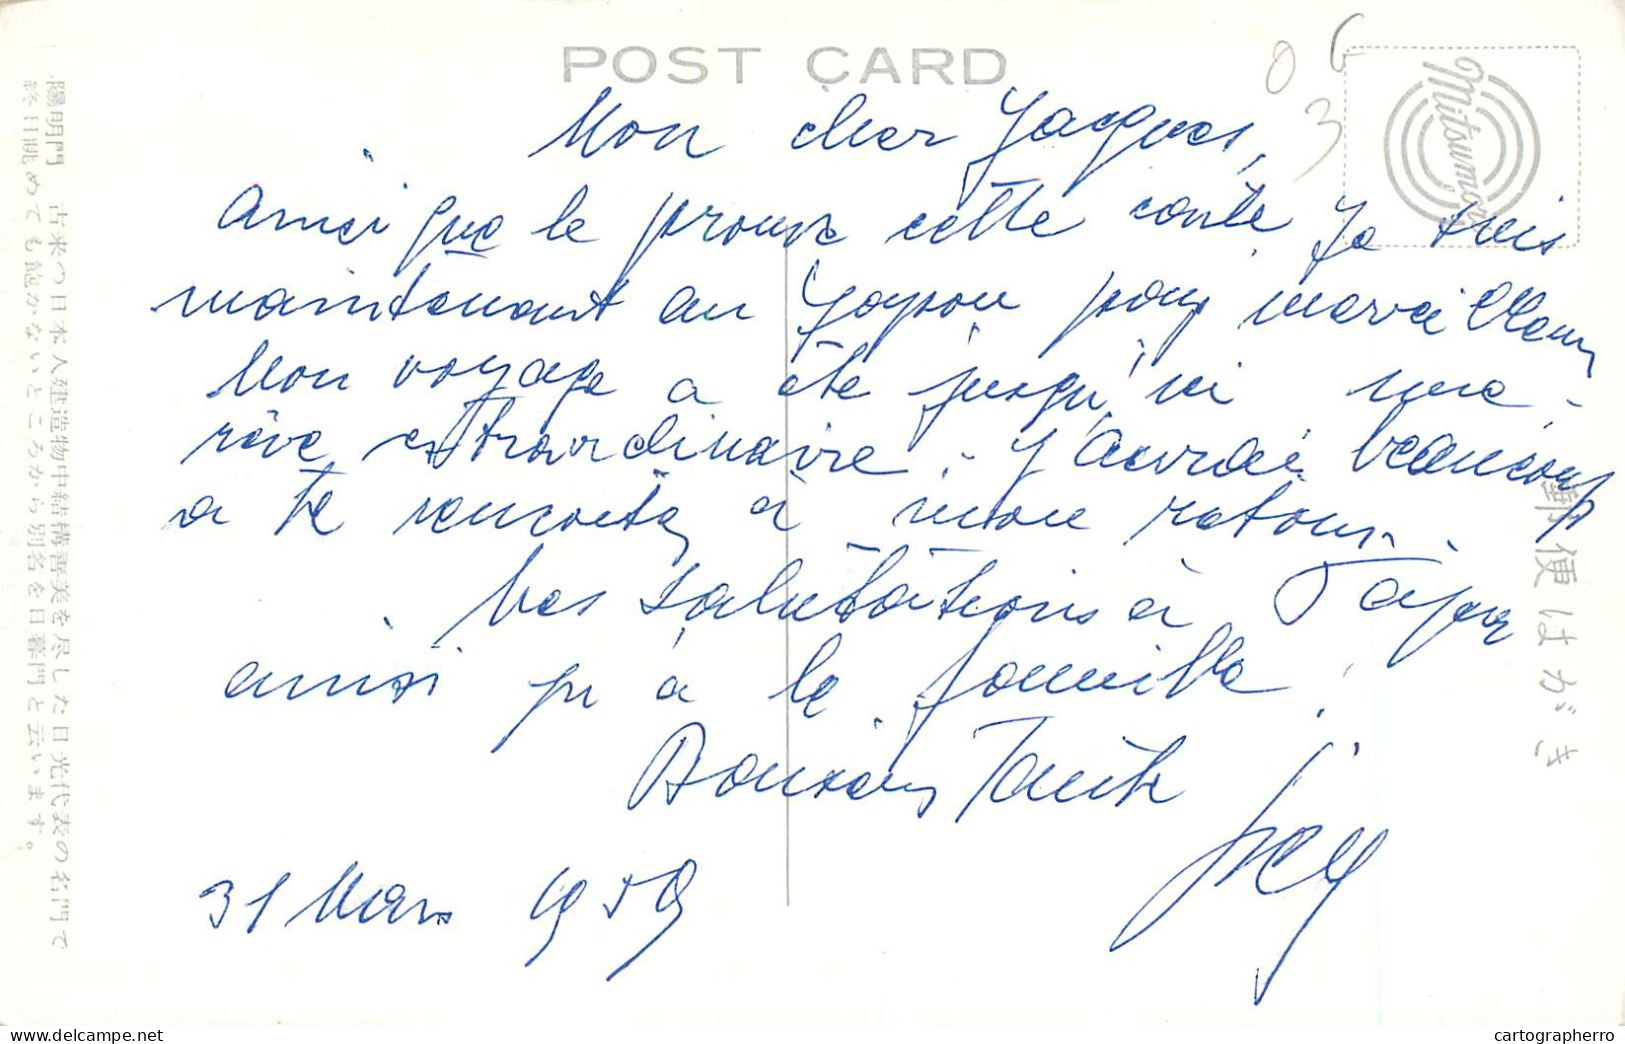 POST CARD
Mitsumura
Mon cher Jacques,
Ainsi que le prouve cette carte Je suis
maintenant au Japon pays merveilleux
Mon voyage a été jusqu'ici une
rêve extraordinaire. J'aurai beaucoup
a te raconter à mon retour.
Mes salutations à
ainsi qu'à la famille.
31 Mars 1959
郵便はがき
陽明門 古来つ日本人建造物中結構善美を尽した日光代表の名門で
終日眺めても飽かないところから別名を日暮門と云います。
delcampe.net
cartographerro